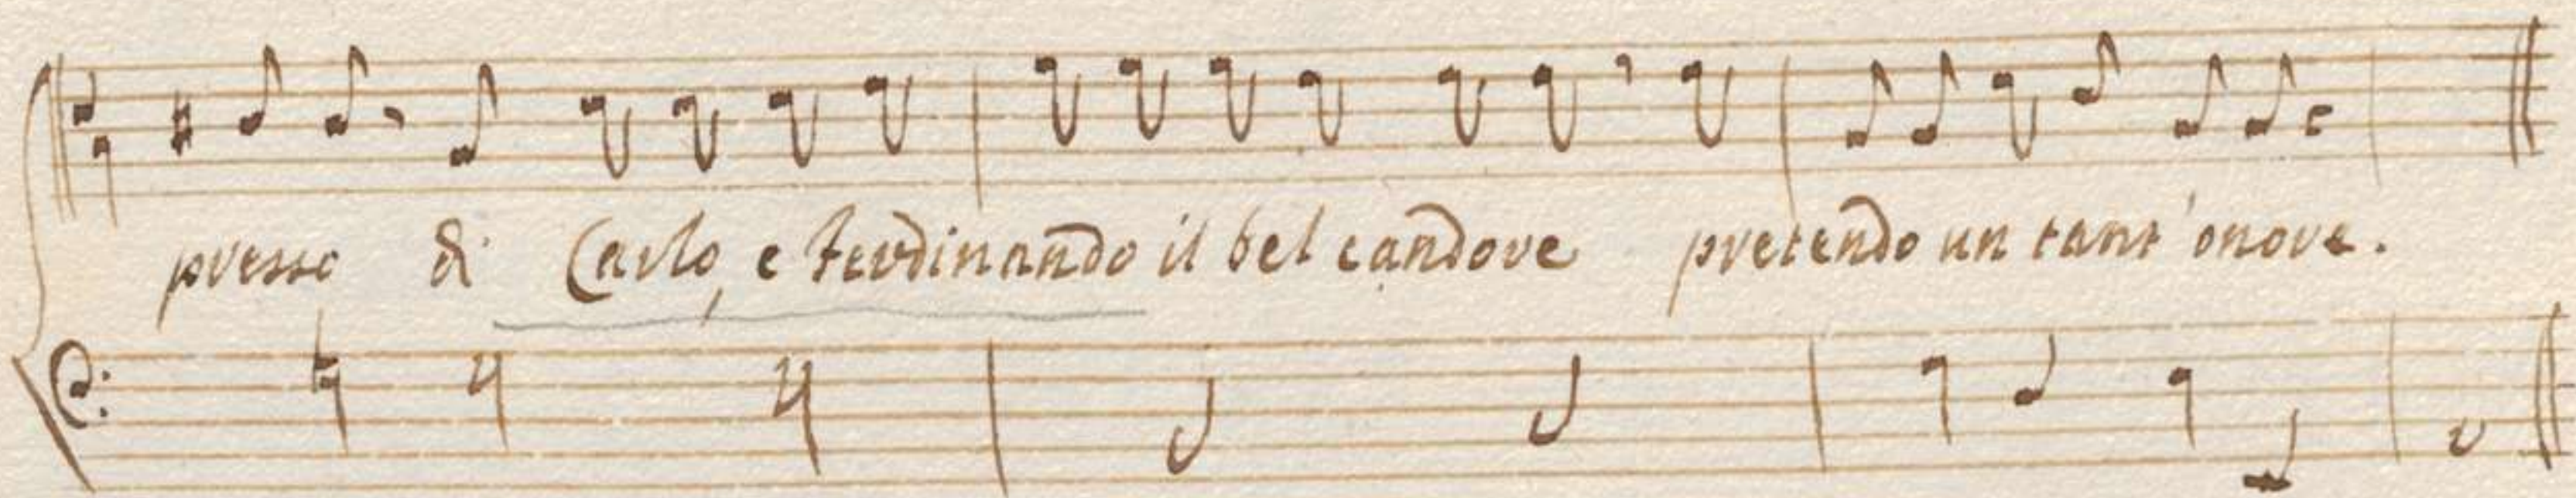 presso di Carlo, e Ferdinando il bel candore pretendo un tant'onore.